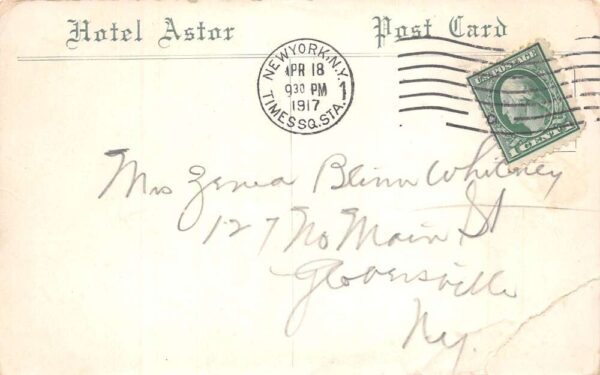 Hotel Astor Post Card
NEW YORK, N.Y.
APR 18
930 PM
1917
1
TIMES SQ. STA.
U.S. POSTAGE
1 CENT 1
Mrs Zenea Blinn Whitney
127 No Main St
Gloversville
Ny.